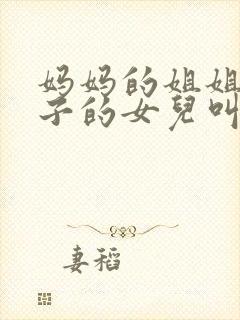 妈妈的姐姐
子的女兒叫
妻稻